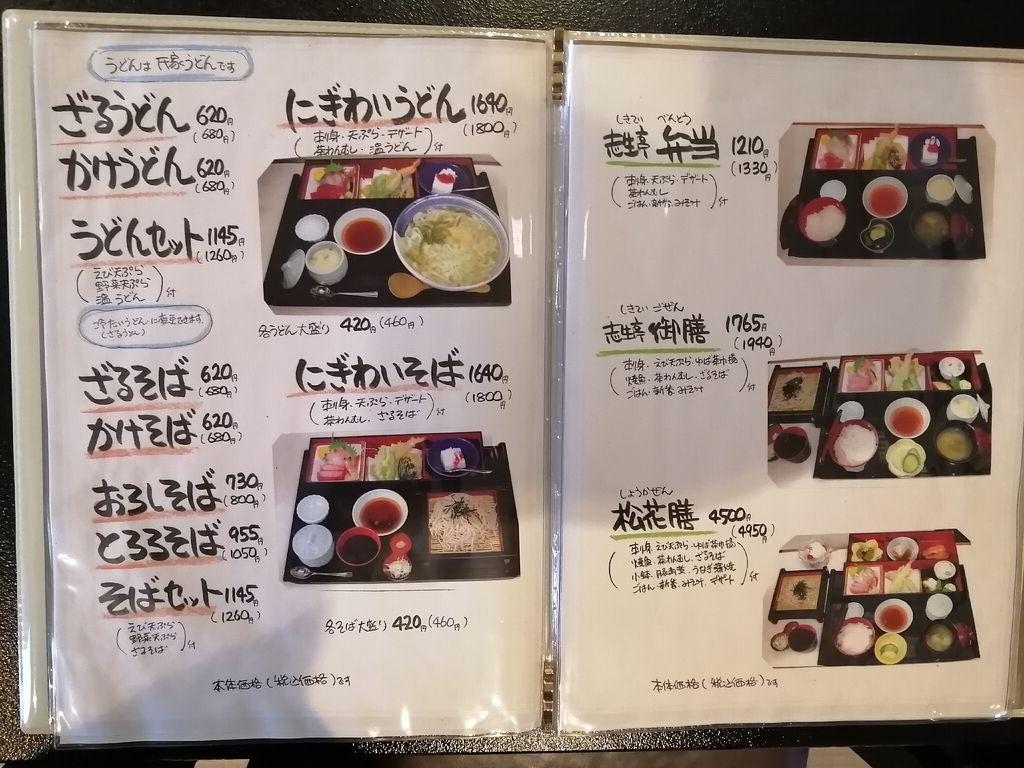 うどんは 氏家うどんです
ざるうどん 620円
(680円)
かけうどん 620円
(680円)
うどんセット 1145円
(1260円)
(えび天ぷら
野菜天ぷら
温うどん)付
冷たいうどんに変更できます。
(ざるうどん)
ざるそば 620円
(680円)
かけそば 620円
(680円)
おろしそば 730円
(800円)
とろろそば 955円
(1050円)
そばセット 1145円
(1260円)
(えび天ぷら
野菜天ぷら
ざるそば)付
にぎわいうどん 1640円
(1800円)
(刺身・天ぷら・デザート
茶わんむし・温うどん)付
各うどん大盛り 420円(460円)
にぎわいそば 1640円
(1800円)
(刺身・天ぷら・デザート
茶わんむし・ざるそば)付
各そば大盛り 420円(460円)
本体価格(税込価格)です
しきてい べんとう
志生亭 弁当 1210円
(1330円)
(刺身・天ぷら・デザート
茶わんむし
ごはん・新香・みそ汁)付
しきてい ごぜん
志生亭 御膳 1765円
(1940円)
(刺身・えび天ぷら・ゆば茶巾揚
焼魚・茶わんむし・ざるそば
ごはん・新香・みそ汁)付
しょうかぜん
松花膳 4500円
(4950円)
(刺身・えび天ぷら・ゆば茶巾揚
焼魚・茶わんむし・ざるそば
小鉢・うなぎ蒲焼
ごはん・新香・みそ汁・デザート)付
本体価格(税込価格)です